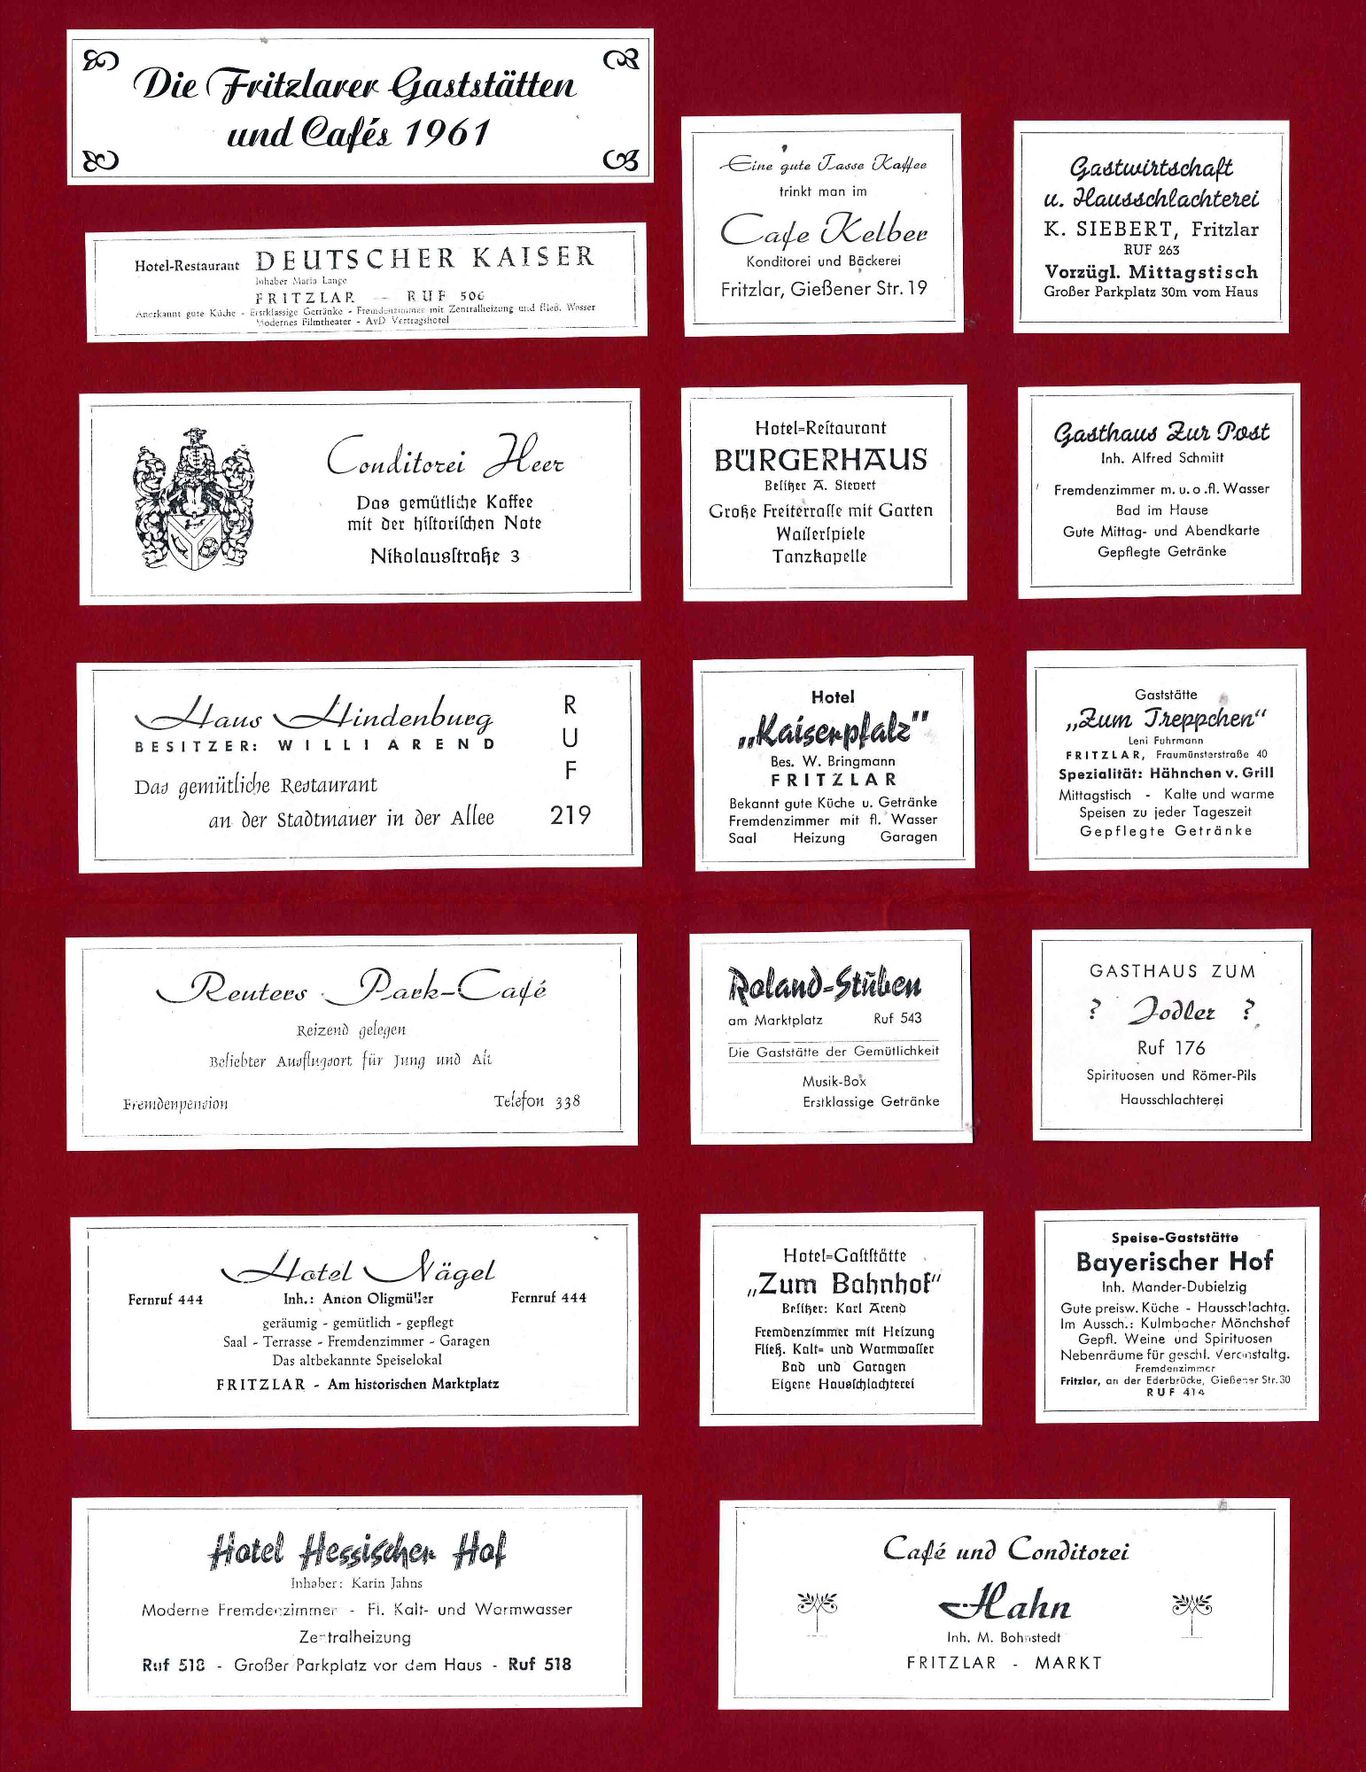 Die Fritzlarer Gaststätten
und Cafés 1961
Hotel-Restaurant DEUTSCHER KAISER
Inhaber Maria Lange
FRITZLAR — RUF 506
Anerkannt gute Küche - Erstklassige Getränke - Fremdenzimmer mit Zentralheizung und fließ. Wasser
Modernes Filmtheater - AvD Vertragshotel
Eine gute Tasse Kaffee
trinkt man im
Cafe Kelber
Konditorei und Bäckerei
Fritzlar, Gießener Str. 19
Gastwirtschaft
u. Hausschlachterei
K. SIEBERT, Fritzlar
RUF 263
Vorzügl. Mittagstisch
Großer Parkplatz 30m vom Haus
Conditorei Heer
Das gemütliche Kaffee
mit der historischen Note
Nikolausstraße 3
Hotel=Restaurant
BÜRGERHAUS
Besitzer A. Sievert
Große Freiterrasse mit Garten
Wasserspiele
Tanzkapelle
Gasthaus Zur Post
Inh. Alfred Schmitt
Fremdenzimmer m. u. o. fl. Wasser
Bad im Hause
Gute Mittag- und Abendkarte
Gepflegte Getränke
Haus Hindenburg
BESITZER: WILLI AREND
Das gemütliche Restaurant
an der Stadtmauer in der Allee
RUF
219
Hotel
„Kaiserpfalz"
Bes. W. Bringmann
FRITZLAR
Bekannt gute Küche u. Getränke
Fremdenzimmer mit fl. Wasser
Saal Heizung Garagen
Gaststätte
„Zum Treppchen"
Leni Fuhrmann
FRITZLAR, Fraumünsterstraße 40
Spezialität: Hähnchen v. Grill
Mittagstisch - Kalte und warme
Speisen zu jeder Tageszeit
Gepflegte Getränke
Reuters Park-Café
Reizend gelegen
Beliebter Ausflugsort für Jung und Alt
Fremdenpension Telefon 338
Roland-Stuben
am Marktplatz Ruf 543
Die Gaststätte der Gemütlichkeit
Musik-Box
Erstklassige Getränke
GASTHAUS ZUM
? Jodler ?
Ruf 176
Spirituosen und Römer-Pils
Hausschlachterei
Hotel Nägel
Fernruf 444 Inh.: Anton Oligmüller Fernruf 444
geräumig - gemütlich - gepflegt
Saal - Terrasse - Fremdenzimmer - Garagen
Das altbekannte Speiselokal
FRITZLAR - Am historischen Marktplatz
Hotel=Gaststätte
„Zum Bahnhof"
Besitzer: Karl Arend
Fremdenzimmer mit Heizung
Fließ. Kalt= und Warmwasser
Bad und Garagen
Eigene Hausschlachterei
Speise-Gaststätte
Bayerischer Hof
Inh. Mander-Dubielzig
Gute preisw. Küche - Hausschlachtg.
Im Aussch.: Kulmbacher Mönchshof
Gepfl. Weine und Spirituosen
Nebenräume für geschl. Veranstaltg.
Fremdenzimmer
Fritzlar, an der Ederbrücke, Gießener Str. 30
RUF 414
Hotel Hessischer Hof
Inhaber: Karin Jahns
Moderne Fremdenzimmer - Fl. Kalt- und Warmwasser
Zentralheizung
Ruf 518 - Großer Parkplatz vor dem Haus - Ruf 518
Café und Conditorei
Hahn
Inh. M. Bohnstedt
FRITZLAR - MARKT